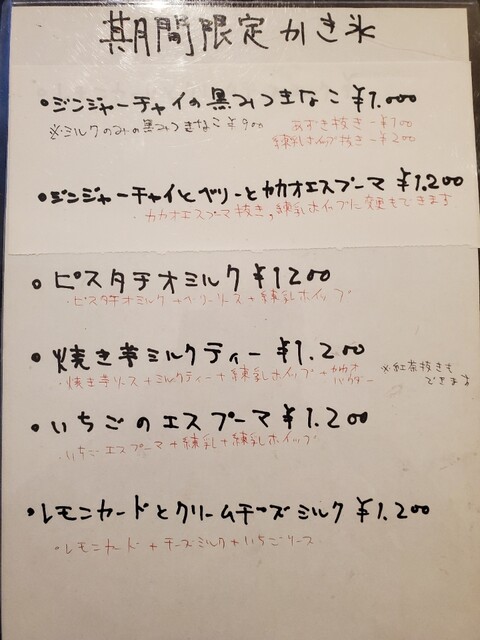 期間限定かき氷
・ジンジャーチャイの黒みつきなこ ¥1.000
※ミルクのみの黒みつきなこ ¥900
あずき抜き -¥100
練乳ホイップ抜き -¥200
・ジンジャーチャイとベリーとカカオエスプーマ ¥1.200
・カカオエスプーマ抜き,練乳ホイップに変更もできます
・ピスタチオミルク ¥1200
・ピスタチオミルク+ベリーソース+練乳ホイップ
・焼き芋ミルクティー ¥1.200
・焼き芋ソース+ミルクティー+練乳ホイップ+カカオパウダー
※紅茶抜きも
できます
・いちごのエスプーマ ¥1.200
・いちごエスプーマ+練乳+練乳ホイップ
・レモンカードとクリームチーズミルク ¥1.200
・レモンカード+チーズミルク+いちごソース